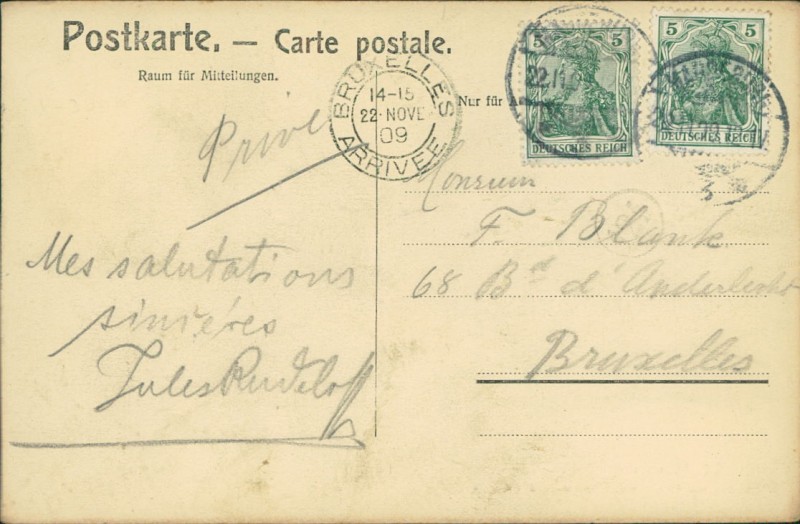 Postkarte. — Carte postale.
Raum für Mitteilungen.
Nur für
BRUXELLES
14-15
22·NOVE
09
ARRIVEE
5 5
DEUTSCHES REICH
5 5
DEUTSCHES REICH
Privé
Mes salutations
sincères
Jules
F. Blank
68 Bd d'Anderlecht
Bruxelles